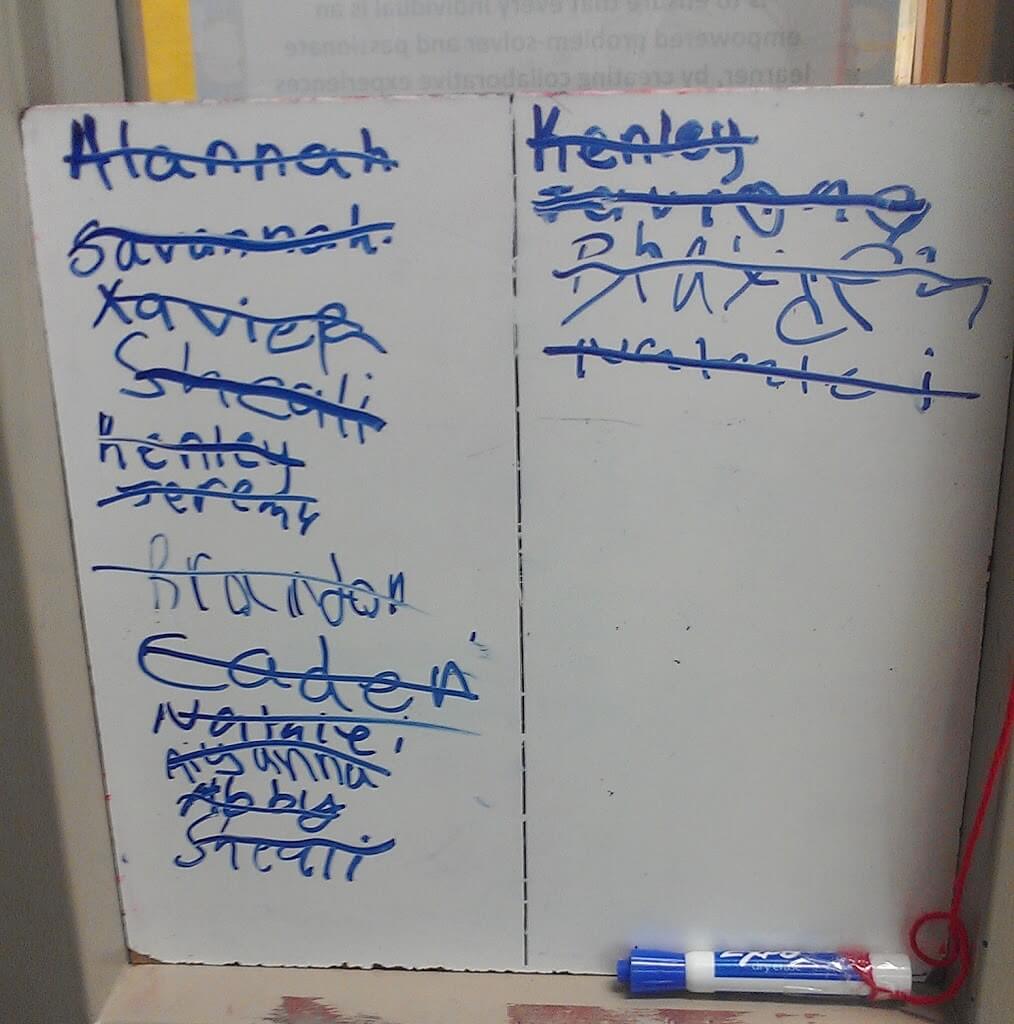 is to ensure that every individual is an
empowered problem-solver and passionate
learner, by creating collaborative experiences
Alannah
Savannah
Xavier
Sheali
Kenley
Jeremy
Brandon
Caden
Aiyanna
Abby
Sheali
Kenley
EXPO
dry erase